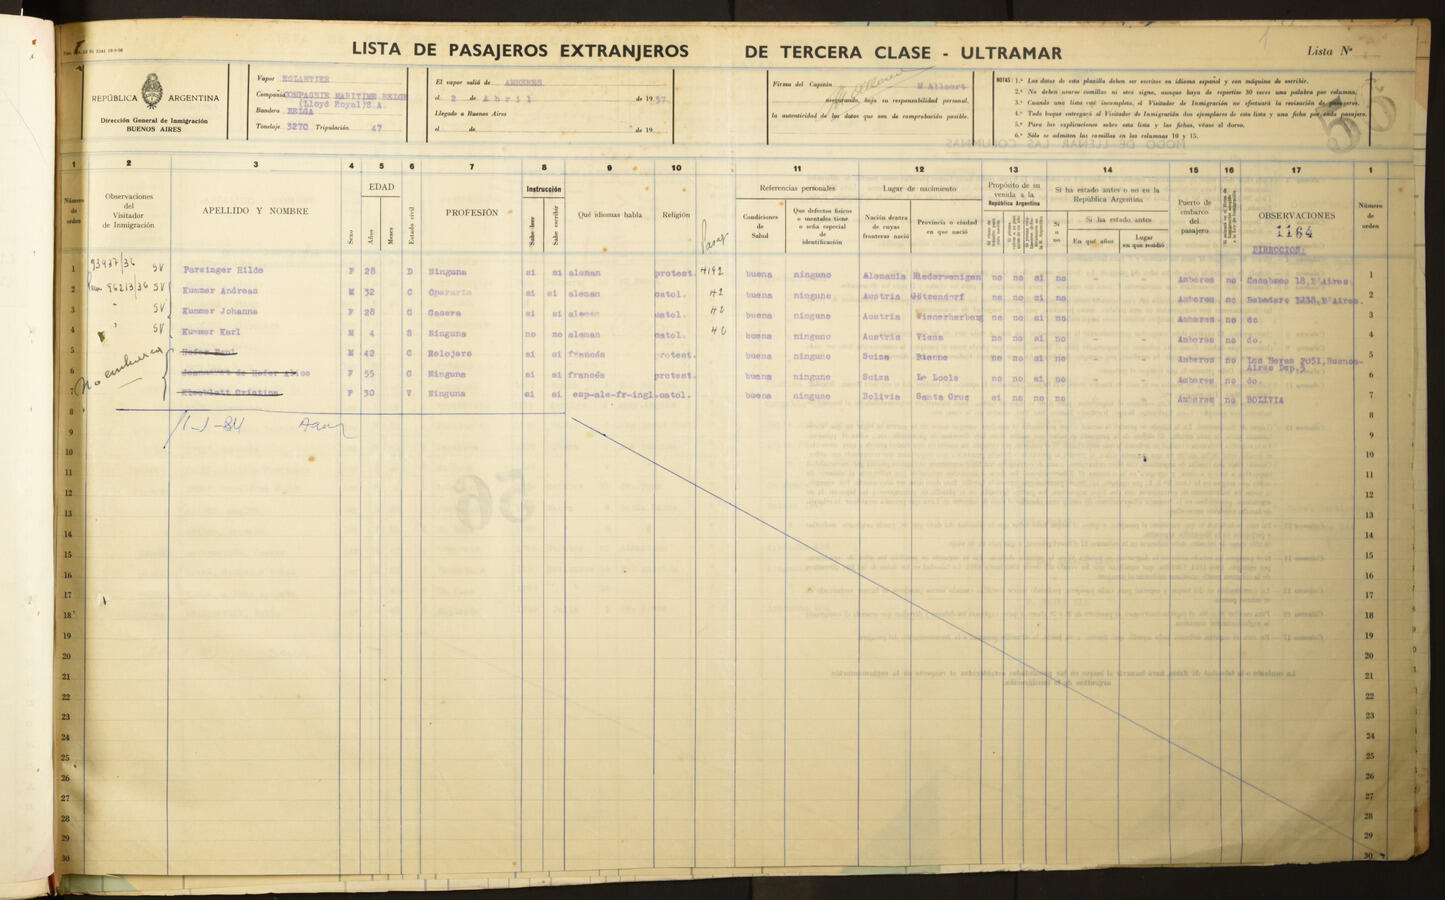 LISTA DE PASAJEROS EXTRANJEROS DE TERCERA CLASE - ULTRAMAR
Lista Nº
REPÚBLICA ARGENTINA
Dirección General de Inmigración
BUENOS AIRES
Vapor EGLANTIER
Compañía COMPAGNIE MARITIME BELGE
(Lloyd Royal)S.A.
Bandera BELGA
Tonelaje 3270 Tripulación 47
El vapor salió de AMBERES
el 2 de Abril de 1937.
Llegado a Buenos Aires
el de de 19
Firma del Capitán
asegurando, bajo su responsabilidad personal,
la autenticidad de los datos que son de comprobación posible.
NOTAS: 1.ª Los datos de esta planilla deben ser escritos en idioma español y con máquina de escribir.
2.ª No deben usarse comillas ni otro signo, aunque haya de repetirse 30 veces una palabra por columna.
3.ª Cuando una lista esté incompleta, el Visitador de Inmigración no efectuará la revisación de pasajeros.
4.ª Todo buque entregará al Visitador de Inmigración dos ejemplares de esta lista y una ficha por cada pasajero.
5.ª Para las explicaciones sobre esta lista y las fichas, véase al dorso.
6.ª Sólo se admiten las comillas en las columnas 10 y 15.
1 2 3 4 5 6 7 8 9 10 11 12 13 14 15 16 17 1
Número de orden
Observaciones del Visitador de Inmigración
APELLIDO Y NOMBRE
Sexo
EDAD
Años
Meses
Estado civil
PROFESIÓN
Instrucción
Sabe leer
Sabe escribir
Qué idiomas habla
Religión
Referencias personales
Condiciones de Salud
Que defectos físicos o mentales tiene o seña especial de identificación
Lugar de nacimiento
Nación dentra de cuyas fronteras nació
Provincia o ciudad en que nació
Propósito de su venida a la República Argentina
Si ha estado antes o no en la República Argentina
Si o no
Si ha estado antes
En qué años
Lugar en que residió
Puerto de embarco del pasajero
OBSERVACIONES
1164
DIRECCION:
Número de orden
93937/36 SV
1 Parzinger Hilde F 28 D Ninguna si si aleman protest. 4192 buena ninguno Alemania Niederwenigen no no si no - - Amberes no 18,B'Aires 1
96213/36 SV
2 Kummer Andreas M 32 C si si aleman catol. 42 buena ninguno Austria Götzendorf no no si no - - Amberes no 3238,B'Aires. 2
" SV
3 Kummer Johanna F 28 C Casera si si aleman catol. buena ninguno Austria no no si no - - Amberes no do. 3
" SV
4 Kummer Karl M 4 S Ninguna no no aleman catol. 40 buena ninguno Austria Viena no no si no - - Amberes no do. 4
No embarca
5 M 42 C Relojero si si francés protest. buena ninguno Suiza Bienne no no si no - - Amberes no Las Heras 2051,Buenos-
Aires Dep.3
6 de Hofer Alice F 55 C Ninguna si si francés protest. buena ninguno Suiza Le Locle no no si no - - Amberes no do. 6
7 F 30 V Ninguna si si esp-ale-fr-ingl. catol. buena ninguno Bolivia Santa Cruz si no no no - - Amberes no BOLIVIA 7
8 8
9 9
10 10
11 11
12 12
13 13
14 14
15 15
16 16
17 17
18 18
19 19
20 20
21 21
22 22
23 23
24 24
25 25
26 26
27 27
28 28
29 29
30 30